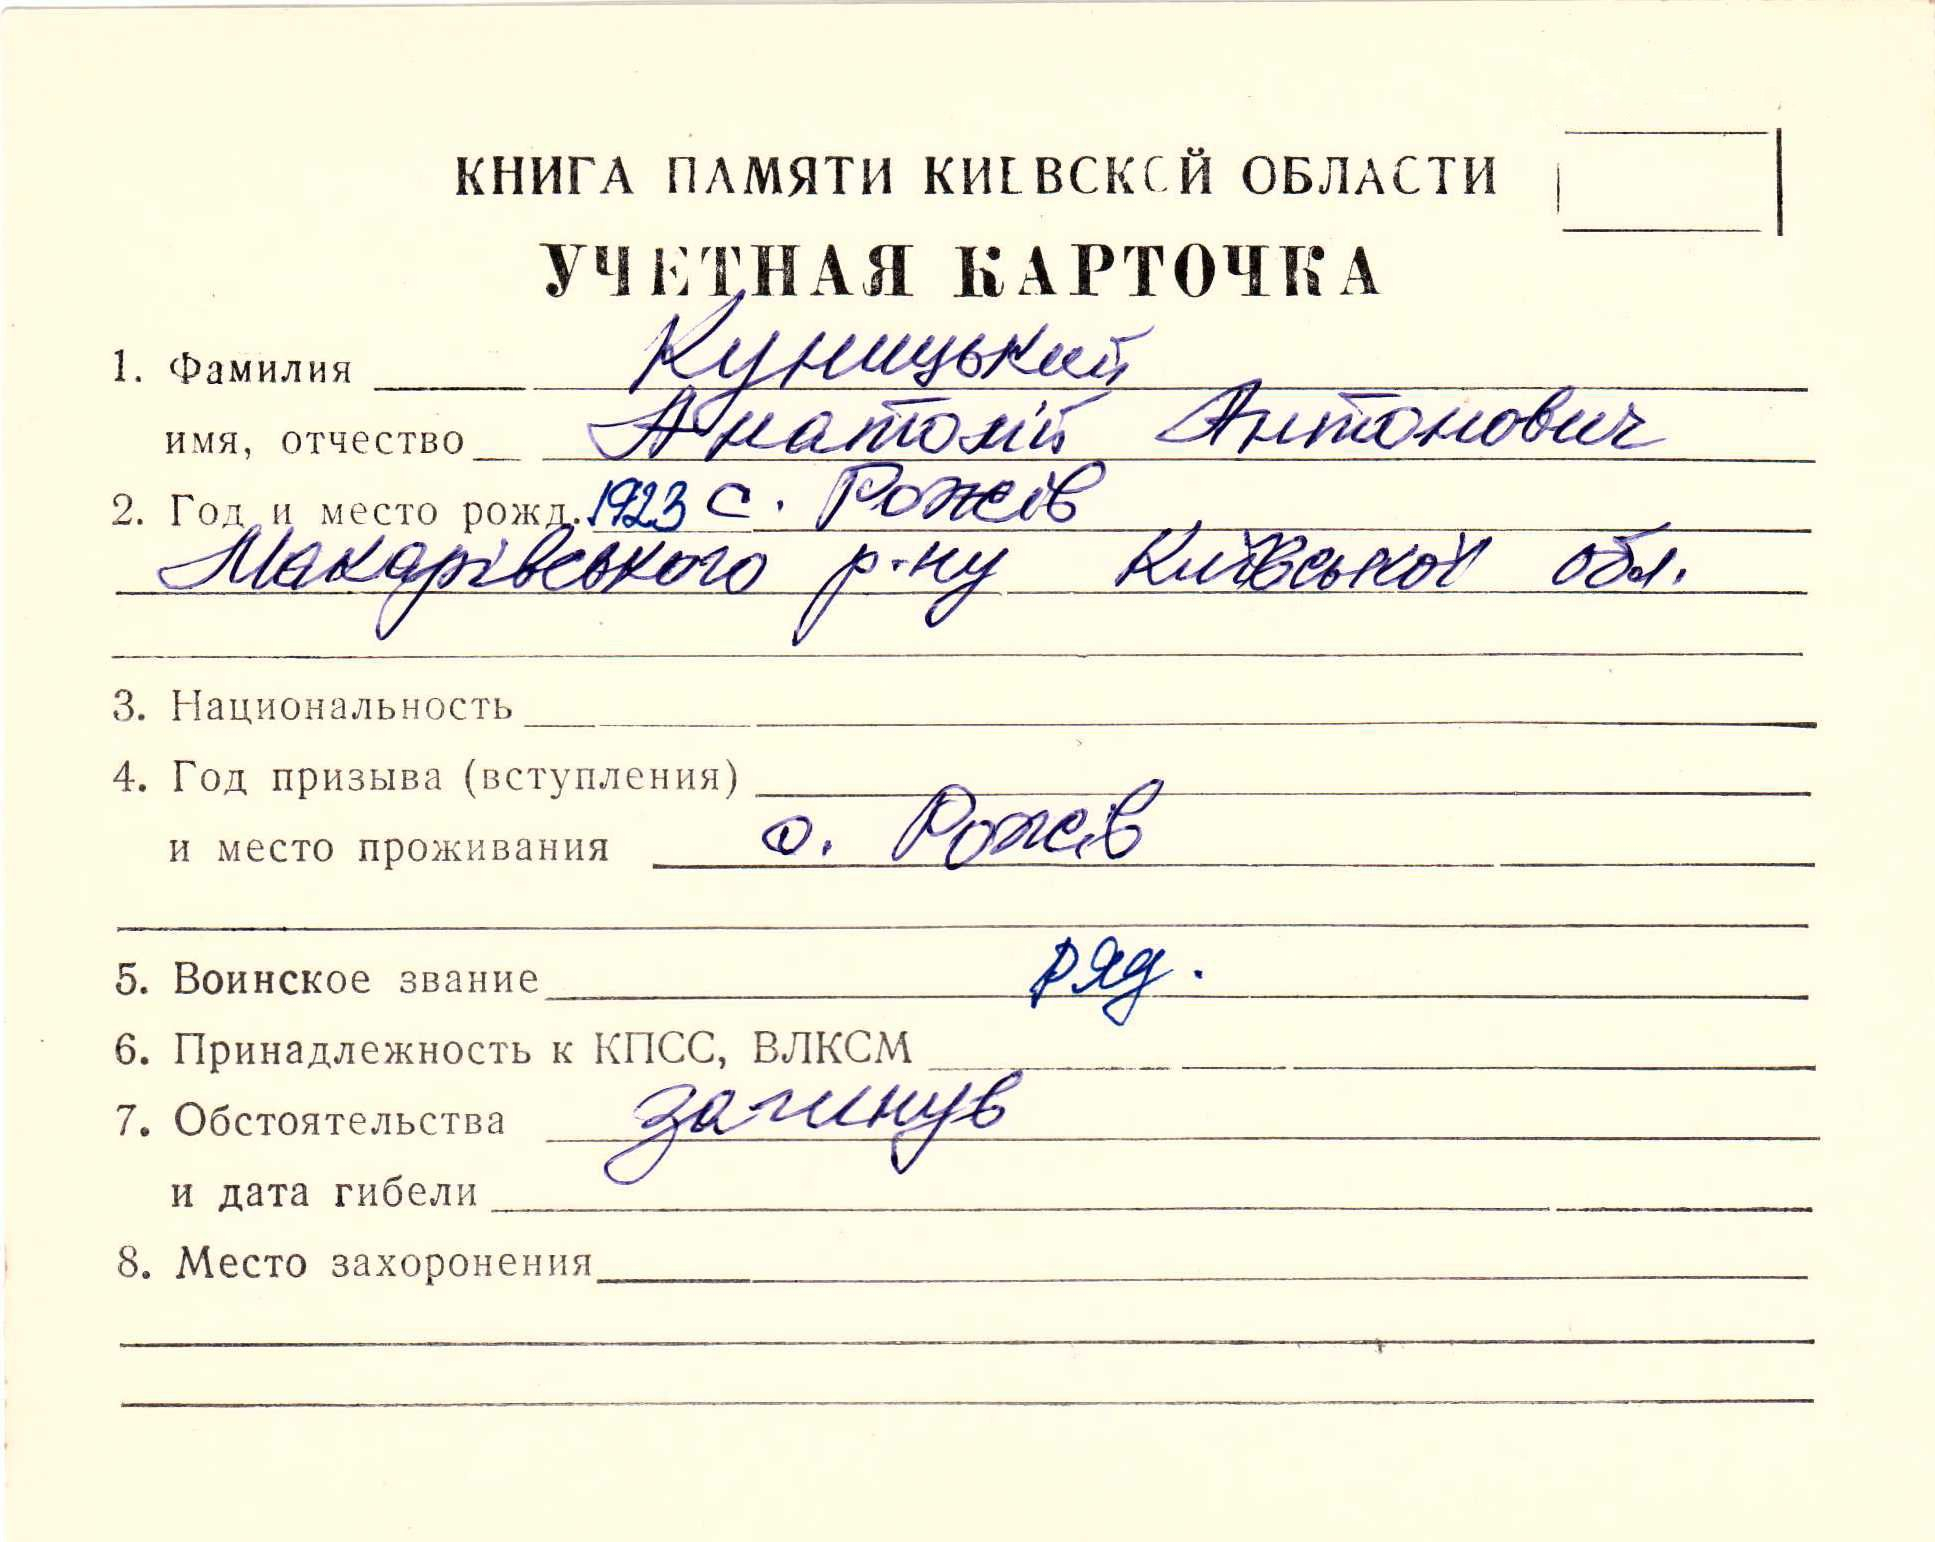 КНИГА ПАМЯТИ КИЕВСКОЙ ОБЛАСТИ
УЧЕТНАЯ КАРТОЧКА
1. Фамилия Куницький
имя, отчество Анатолій Антонович
2. Год и место рожд. 1923 с. Рожів
Макарівського р-ну Київської обл.
3. Национальность
4. Год призыва (вступления)
и место проживания с. Рожів
5. Воинское звание ряд.
6. Принадлежность к КПСС, ВЛКСМ
7. Обстоятельства загинув
и дата гибели
8. Место захоронения